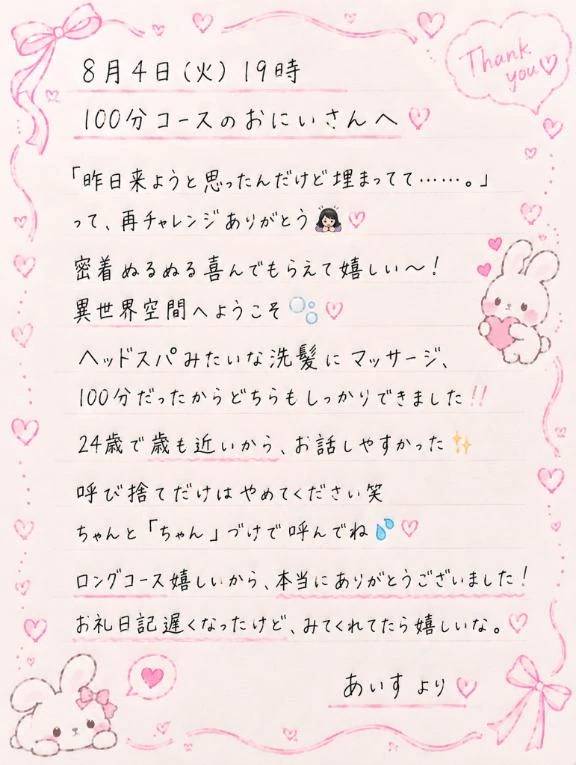 Thank you♡
8月4日(火)19時
100分コースのおにいさんへ♡
「昨日来ようと思ったんだけど埋まってて……。」
って、再チャレンジありがとう🙇🏻‍♀️♡
密着ぬるぬる喜んでもらえて嬉しい〜!
異世界空間へようこそ🫧♡
ヘッドスパみたいな洗髪にマッサージ、
100分だったからどちらもしっかりできました!!
24歳で歳も近いから、お話しやすかった✨
呼び捨てだけはやめてください笑
ちゃんと「ちゃん」づけで呼んでね💦♡
ロングコース嬉しいから、本当にありがとうございました!
お礼日記遅くなったけど、みてくれてたら嬉しいな。♡
あいすより♡